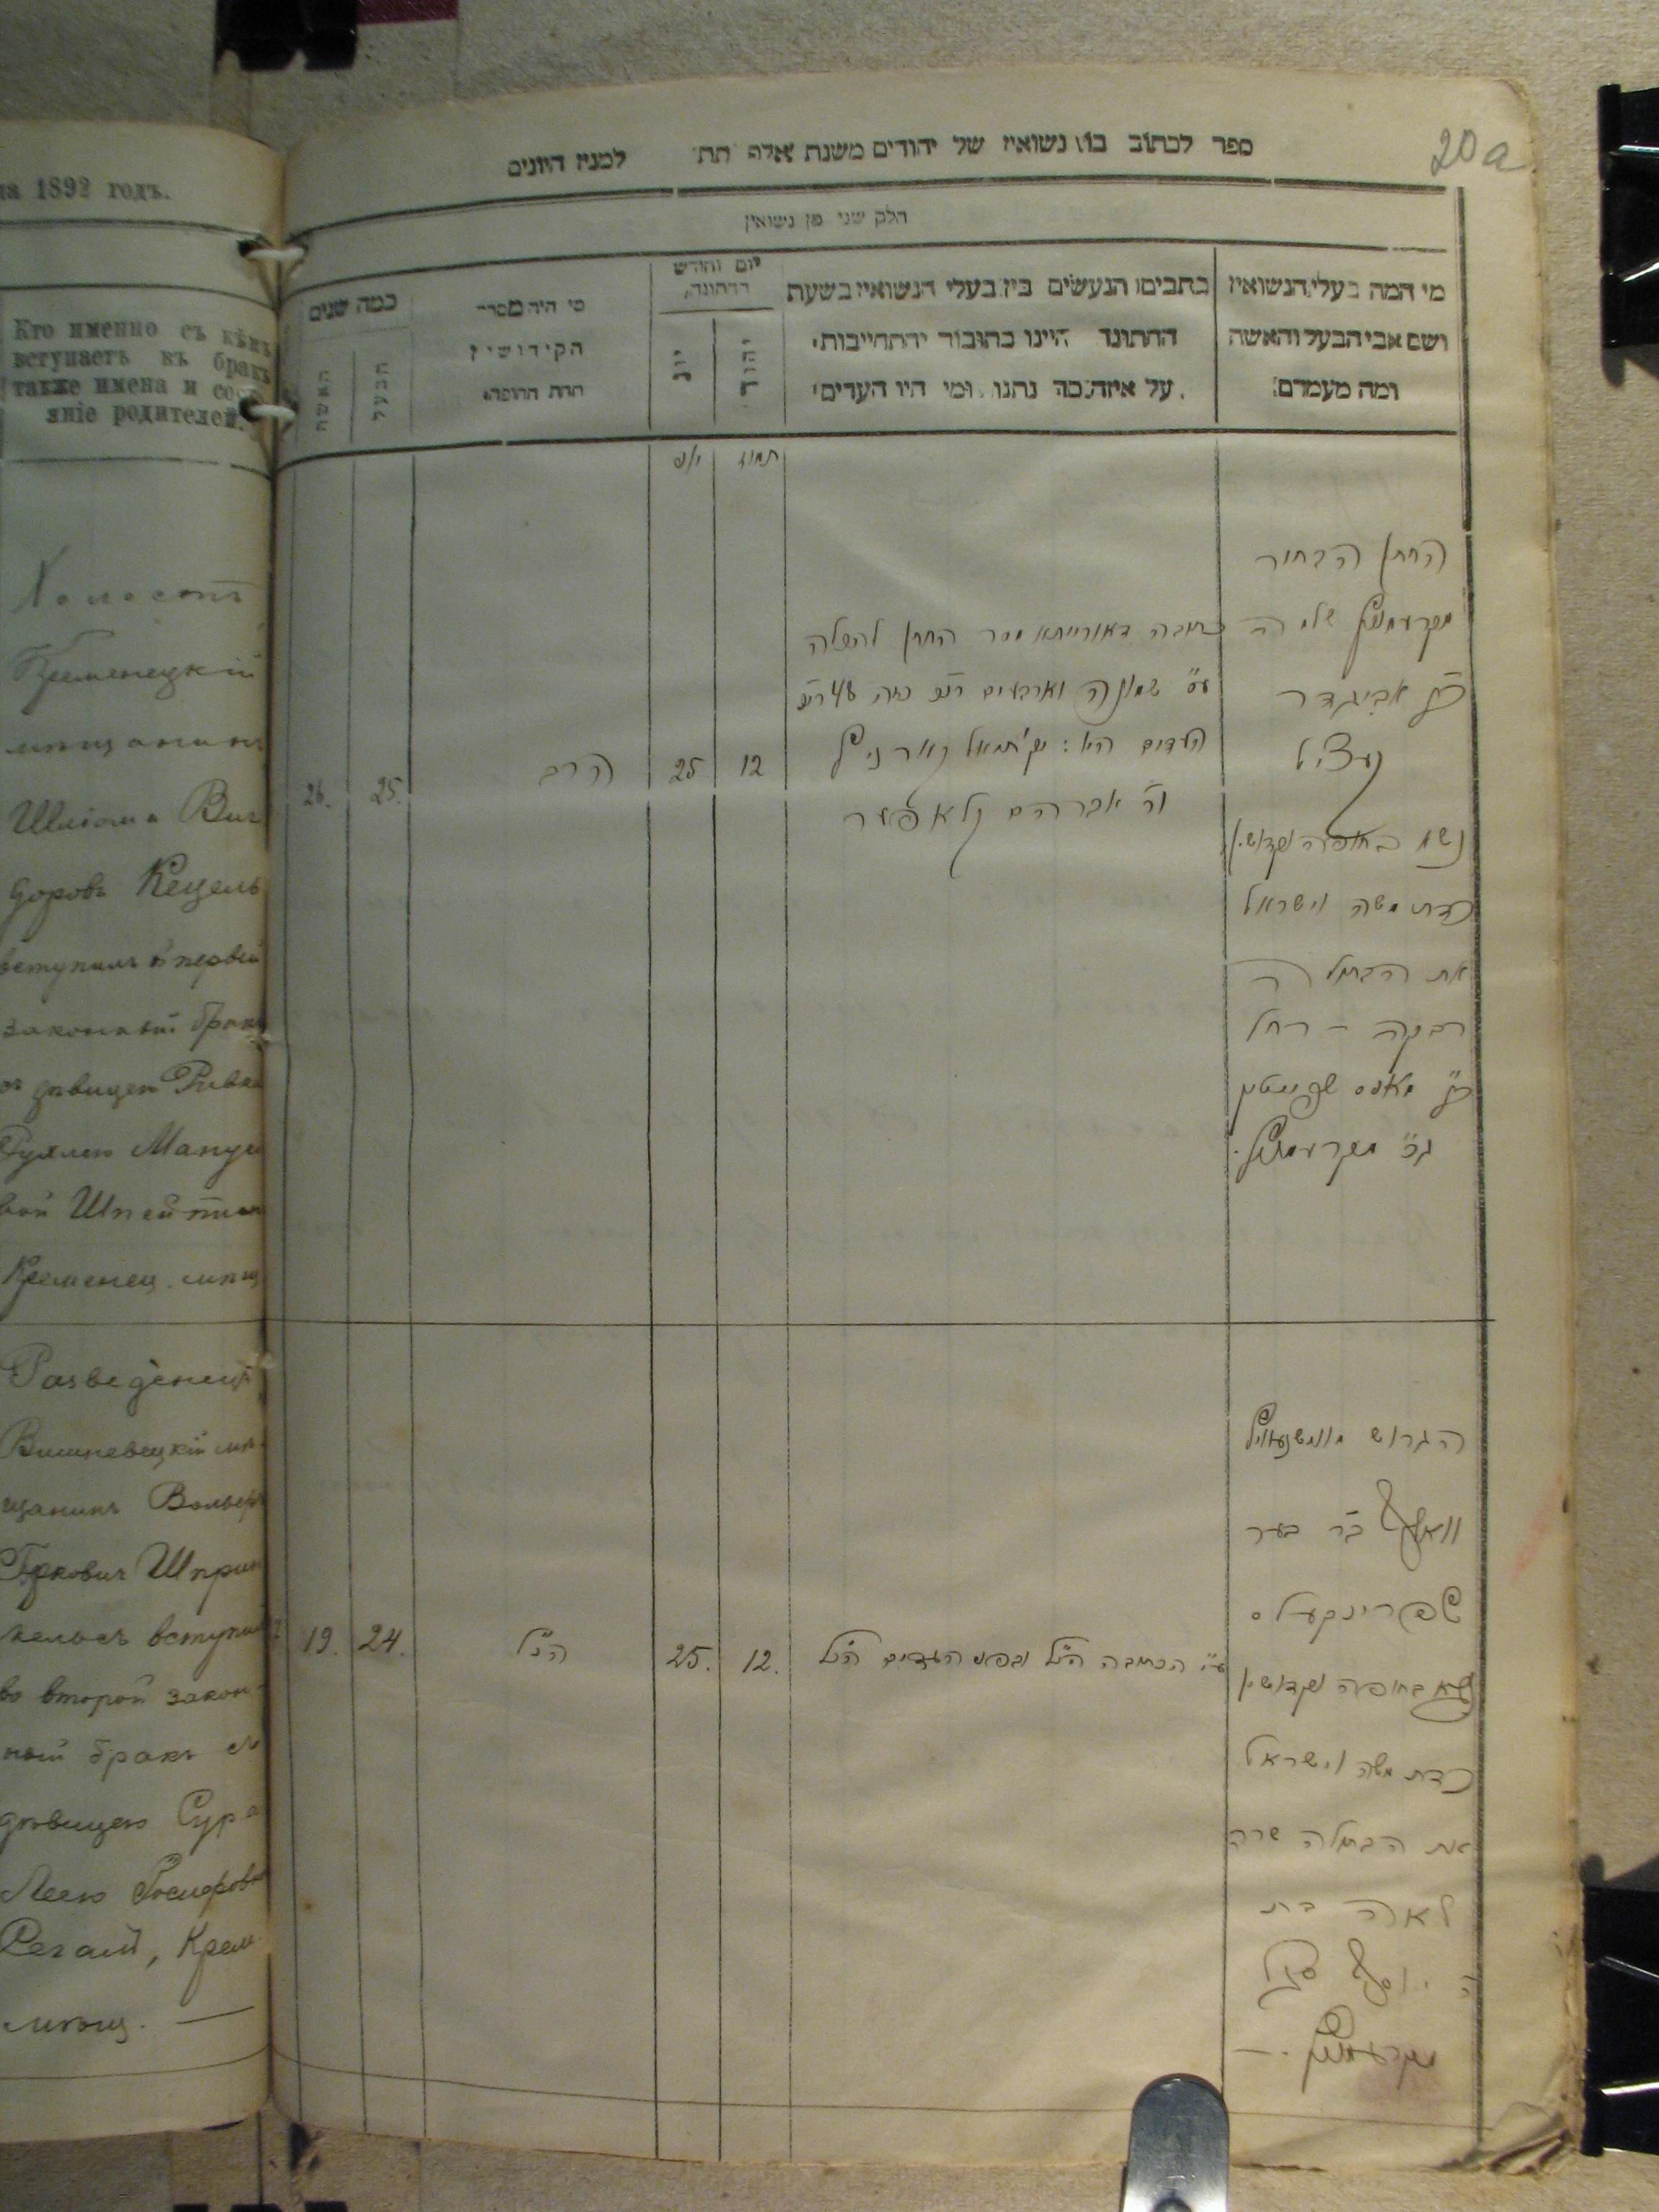 на 1892 годъ.
Кто именно съ кѣмъ
вступаетъ въ бракъ
также имена и сос
яніе родителей.
Холостъ
Кременецкій
мѣщанинъ
Шліома Виг
доровъ Кецель
вступилъ въ первый
законный бракъ
съ дѣвицею Ривка
Рухлею Манус
вой Шпейтман
Кременец. мѣщ
Разведенецъ
Вишневецкій мѣ
щанинъ Вольфъ
Берковичъ Шприн
кельсъ вступил
во второй закон
ный бракъ съ
дѣвицею Сура
Леею Госифов
Сегалъ, Крем.
мѣщ. —
20a
ספר לכתוב בו נשואין של יהודים משנת אלף תת למנין היונים
חלק שני מן נשואין
מי המה בעלי הנשואין
ושם אבי הבעל והאשה
ומה מעמדם:
כתבים הנעשים בין בעלי הנשואין בשעת
החתונה היינו כתובות והתחייבות,
על איזה סך נתנו ומי היו העדים,
יום וחודש
החתונה,
יהודי
יוני
מי היה מסדר
הקידושין
תחת החופה,
כמה שנים
הבעל
האשה
תמוז
יוני
החתן הבחור
מקרעמניץ שלמה
אביגדר
קעציל
נשא בחופה וקדושין
כדת משה וישראל
את הבתולה
רבקה – רחל
שפייטמן
מקרעמניץ.
כתובה דאורייתא מסר החתן להכלה
ע״ס שמונה וארבעים רו״כ כזה 48 רו״כ
העדים הי׳:
ור׳ אברהם קלאפער
12
25
הרב
25.
26.
הגרוש
וואלף ב״ר בער
שפרינקעלס
נשא בחופה וקדושין
כדת משה וישראל
את הבתולה שרה
לאה בת
ר׳ יוסף סגל
מקרעמניץ. —
ע״י הכתובה הנ״ל ובפני העדים הנ״ל
12.
25.
הנ״ל
24.
19.